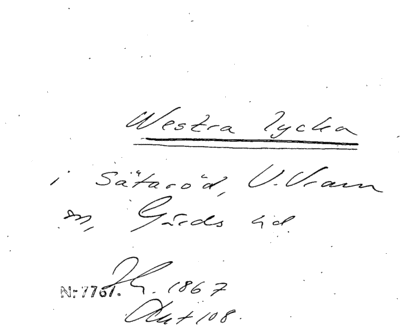 Westra lycka
i Sätaröd, V. Vram
sn, Gärds hd.
Nr 7767. Jb. 1867
Akt 108.